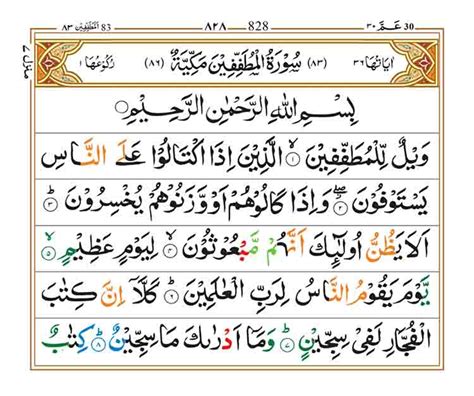 المطففين ٨٣ 83 ٨٢٨ 828 عم ٣٠ 30
اٰيَاتُهَا ٣٦ (٨٣) سُوْرَةُ الْمُطَفِّفِيْنَ مَكِّيَّةٌ (٨٦) رُكُوْعُهَا ١
بِسْمِ اللهِ الرَّحْمٰنِ الرَّحِيْمِ
وَيْلٌ لِّلْمُطَفِّفِيْنَ ۙ‏﴿١﴾ الَّذِيْنَ اِذَا اكْتَالُوْا عَلَى النَّاسِ
يَسْتَوْفُوْنَ ۖ‏﴿٢﴾ وَاِذَا كَالُوْهُمْ اَوْ وَّزَنُوْهُمْ يُخْسِرُوْنَ ؕ‏﴿٣﴾
اَلَا يَظُنُّ اُولٰٓئِكَ اَنَّهُمْ مَّبْعُوْثُوْنَ ۙ‏﴿٤﴾ لِيَوْمٍ عَظِيْمٍ ۙ‏﴿٥﴾
يَّوْمَ يَقُوْمُ النَّاسُ لِرَبِّ الْعٰلَمِيْنَ ؕ‏﴿٦﴾ كَلَّاۤ اِنَّ كِتٰبَ
الْفُجَّارِ لَفِيْ سِجِّيْنٍ ؕ‏﴿٧﴾ وَمَاۤ اَدْرٰىكَ مَا سِجِّيْنٌ ؕ‏﴿٨﴾ كِتٰبٌ
منزل ٧